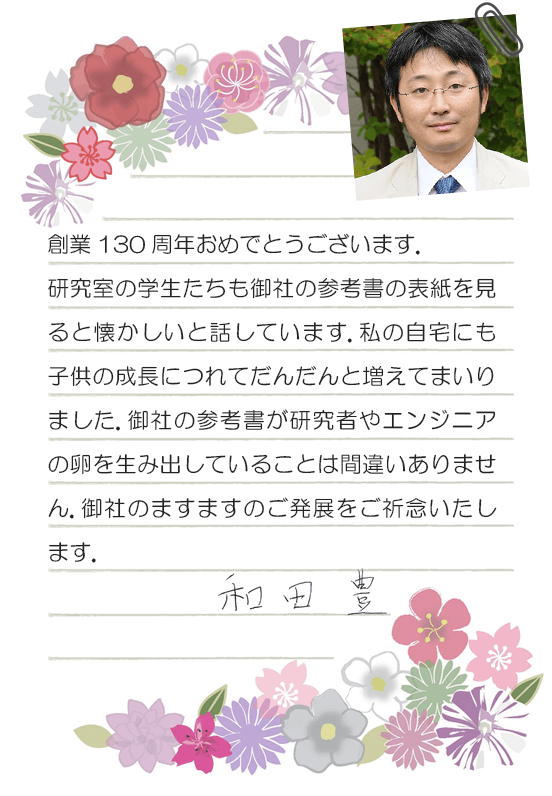 創業 130 周年おめでとうございます．
研究室の学生たちも御社の参考書の表紙を見
ると懐かしいと話しています．私の自宅にも
子供の成長につれてだんだんと増えてまいり
ました．御社の参考書が研究者やエンジニア
の卵を生み出していることは間違いありませ
ん．御社のますますのご発展をご祈念いたし
ます．
和田 豊